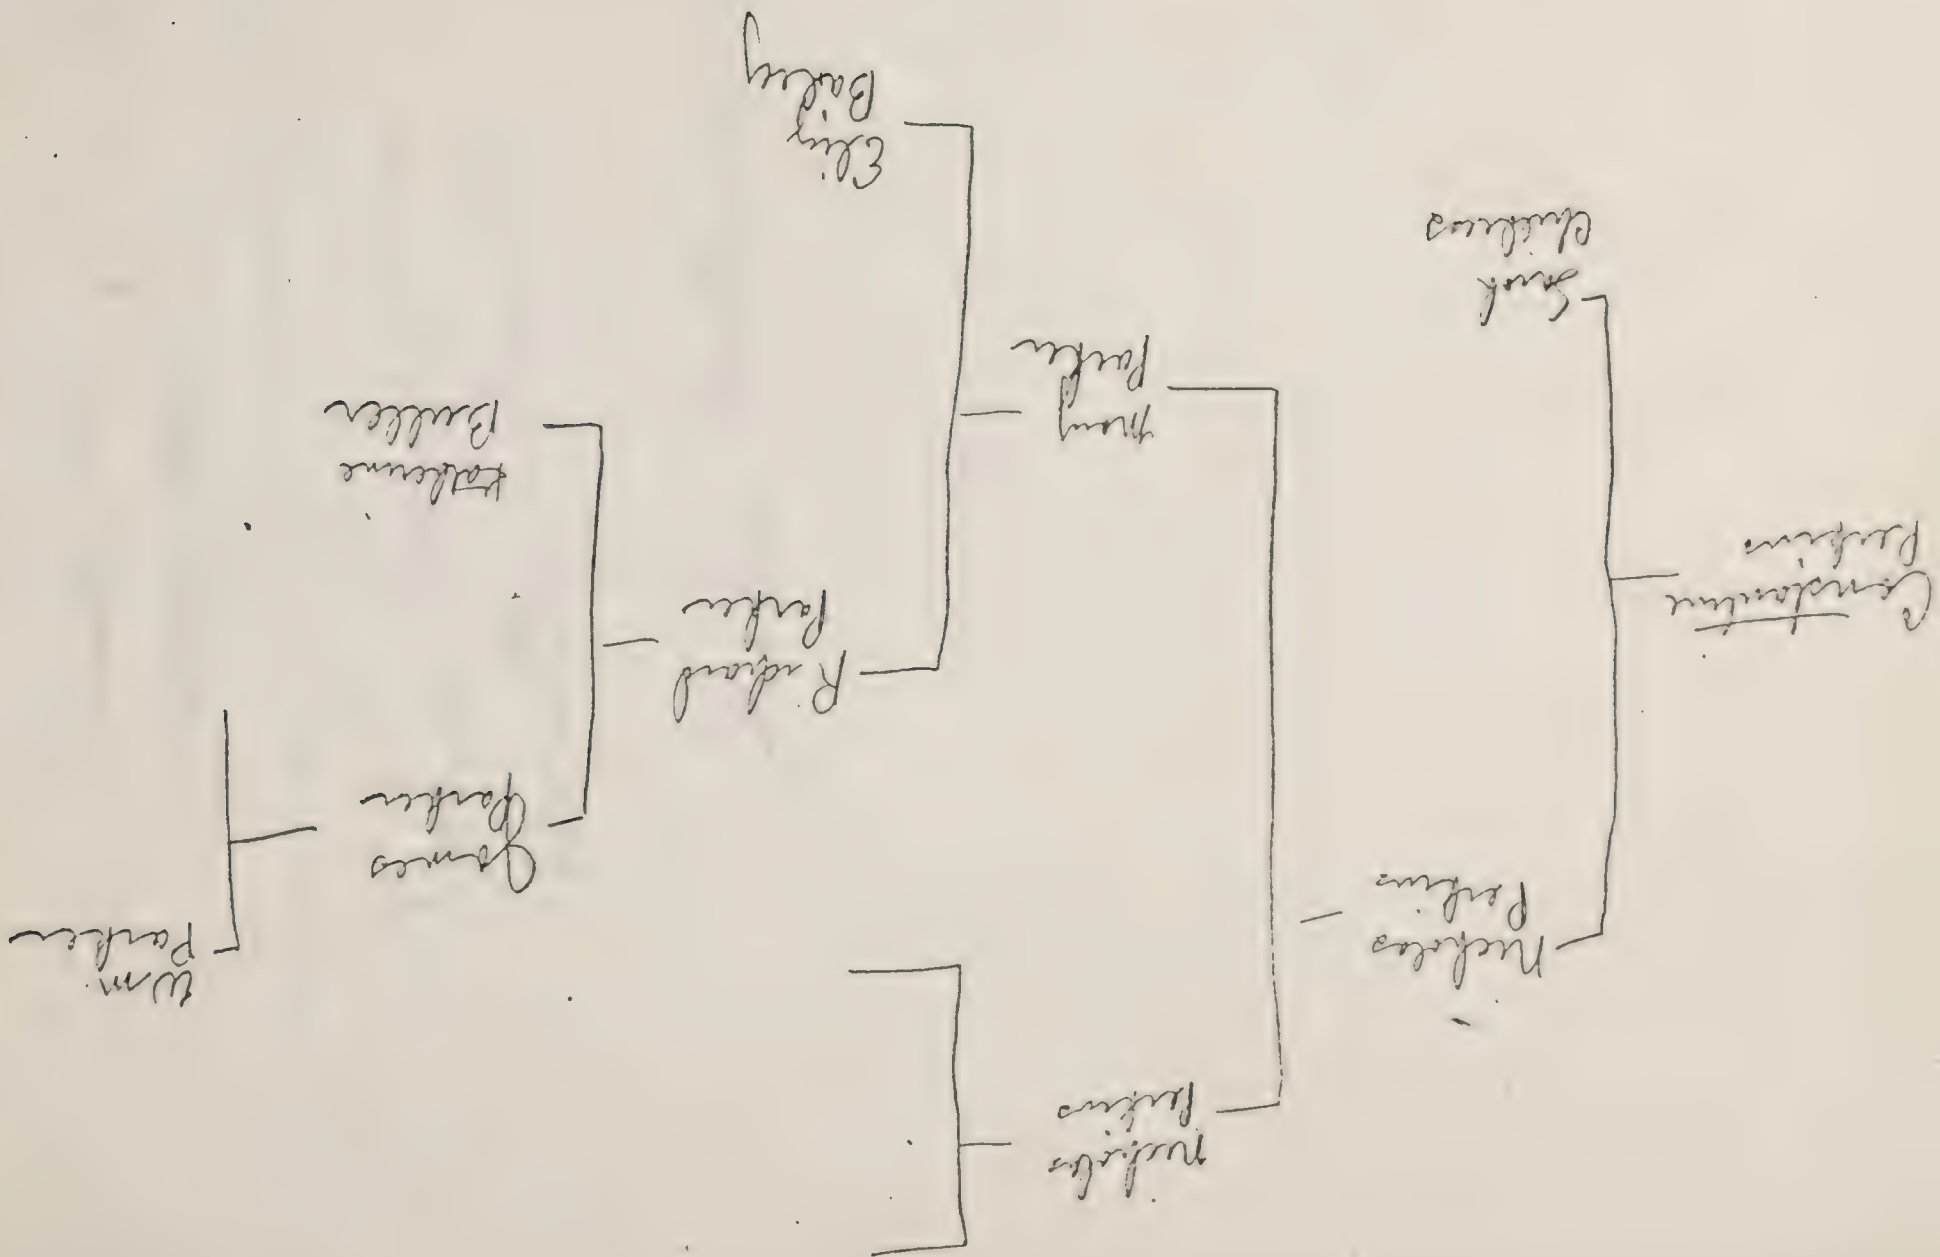 Constantine
Perkins
Nicholas
Perkins
Sarah
Childress
Nicholas
Perkins
Mary
Parker
Richard
Parker
Eliz
Bailey
James
Parker
Katherine
Buller
Wm
Parker